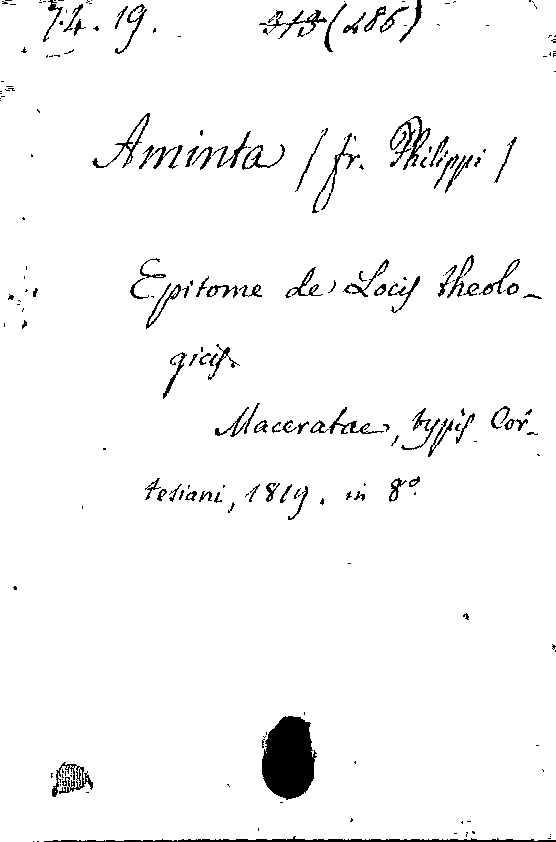 74.19. 313 (286)
Aminta / fr. Philippi /
Epitome de Locis theolo-
gicis.
Maceratae, typis Cor-
tesiani, 1819. in 8º